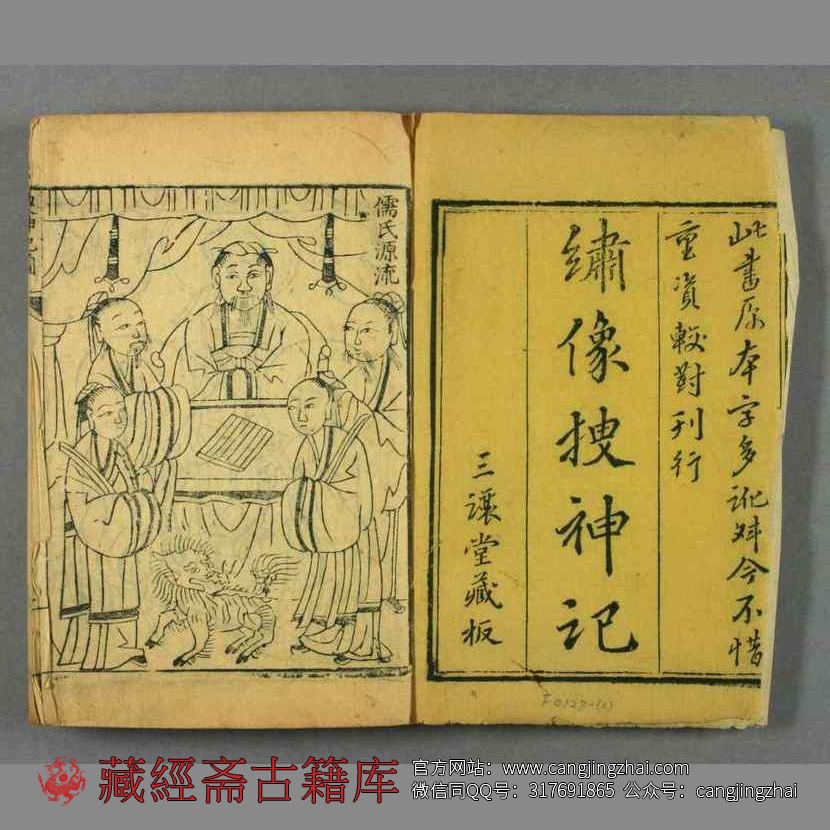 此書原本字多訛舛今不惜
重資較對刊行
繡像搜神記
三讓堂藏板
儒氏源流
F0127-(1)
藏經斋古籍库
官方网站：www.cangjingzhai.com
微信同QQ号：317691865 公众号：cangjingzhai